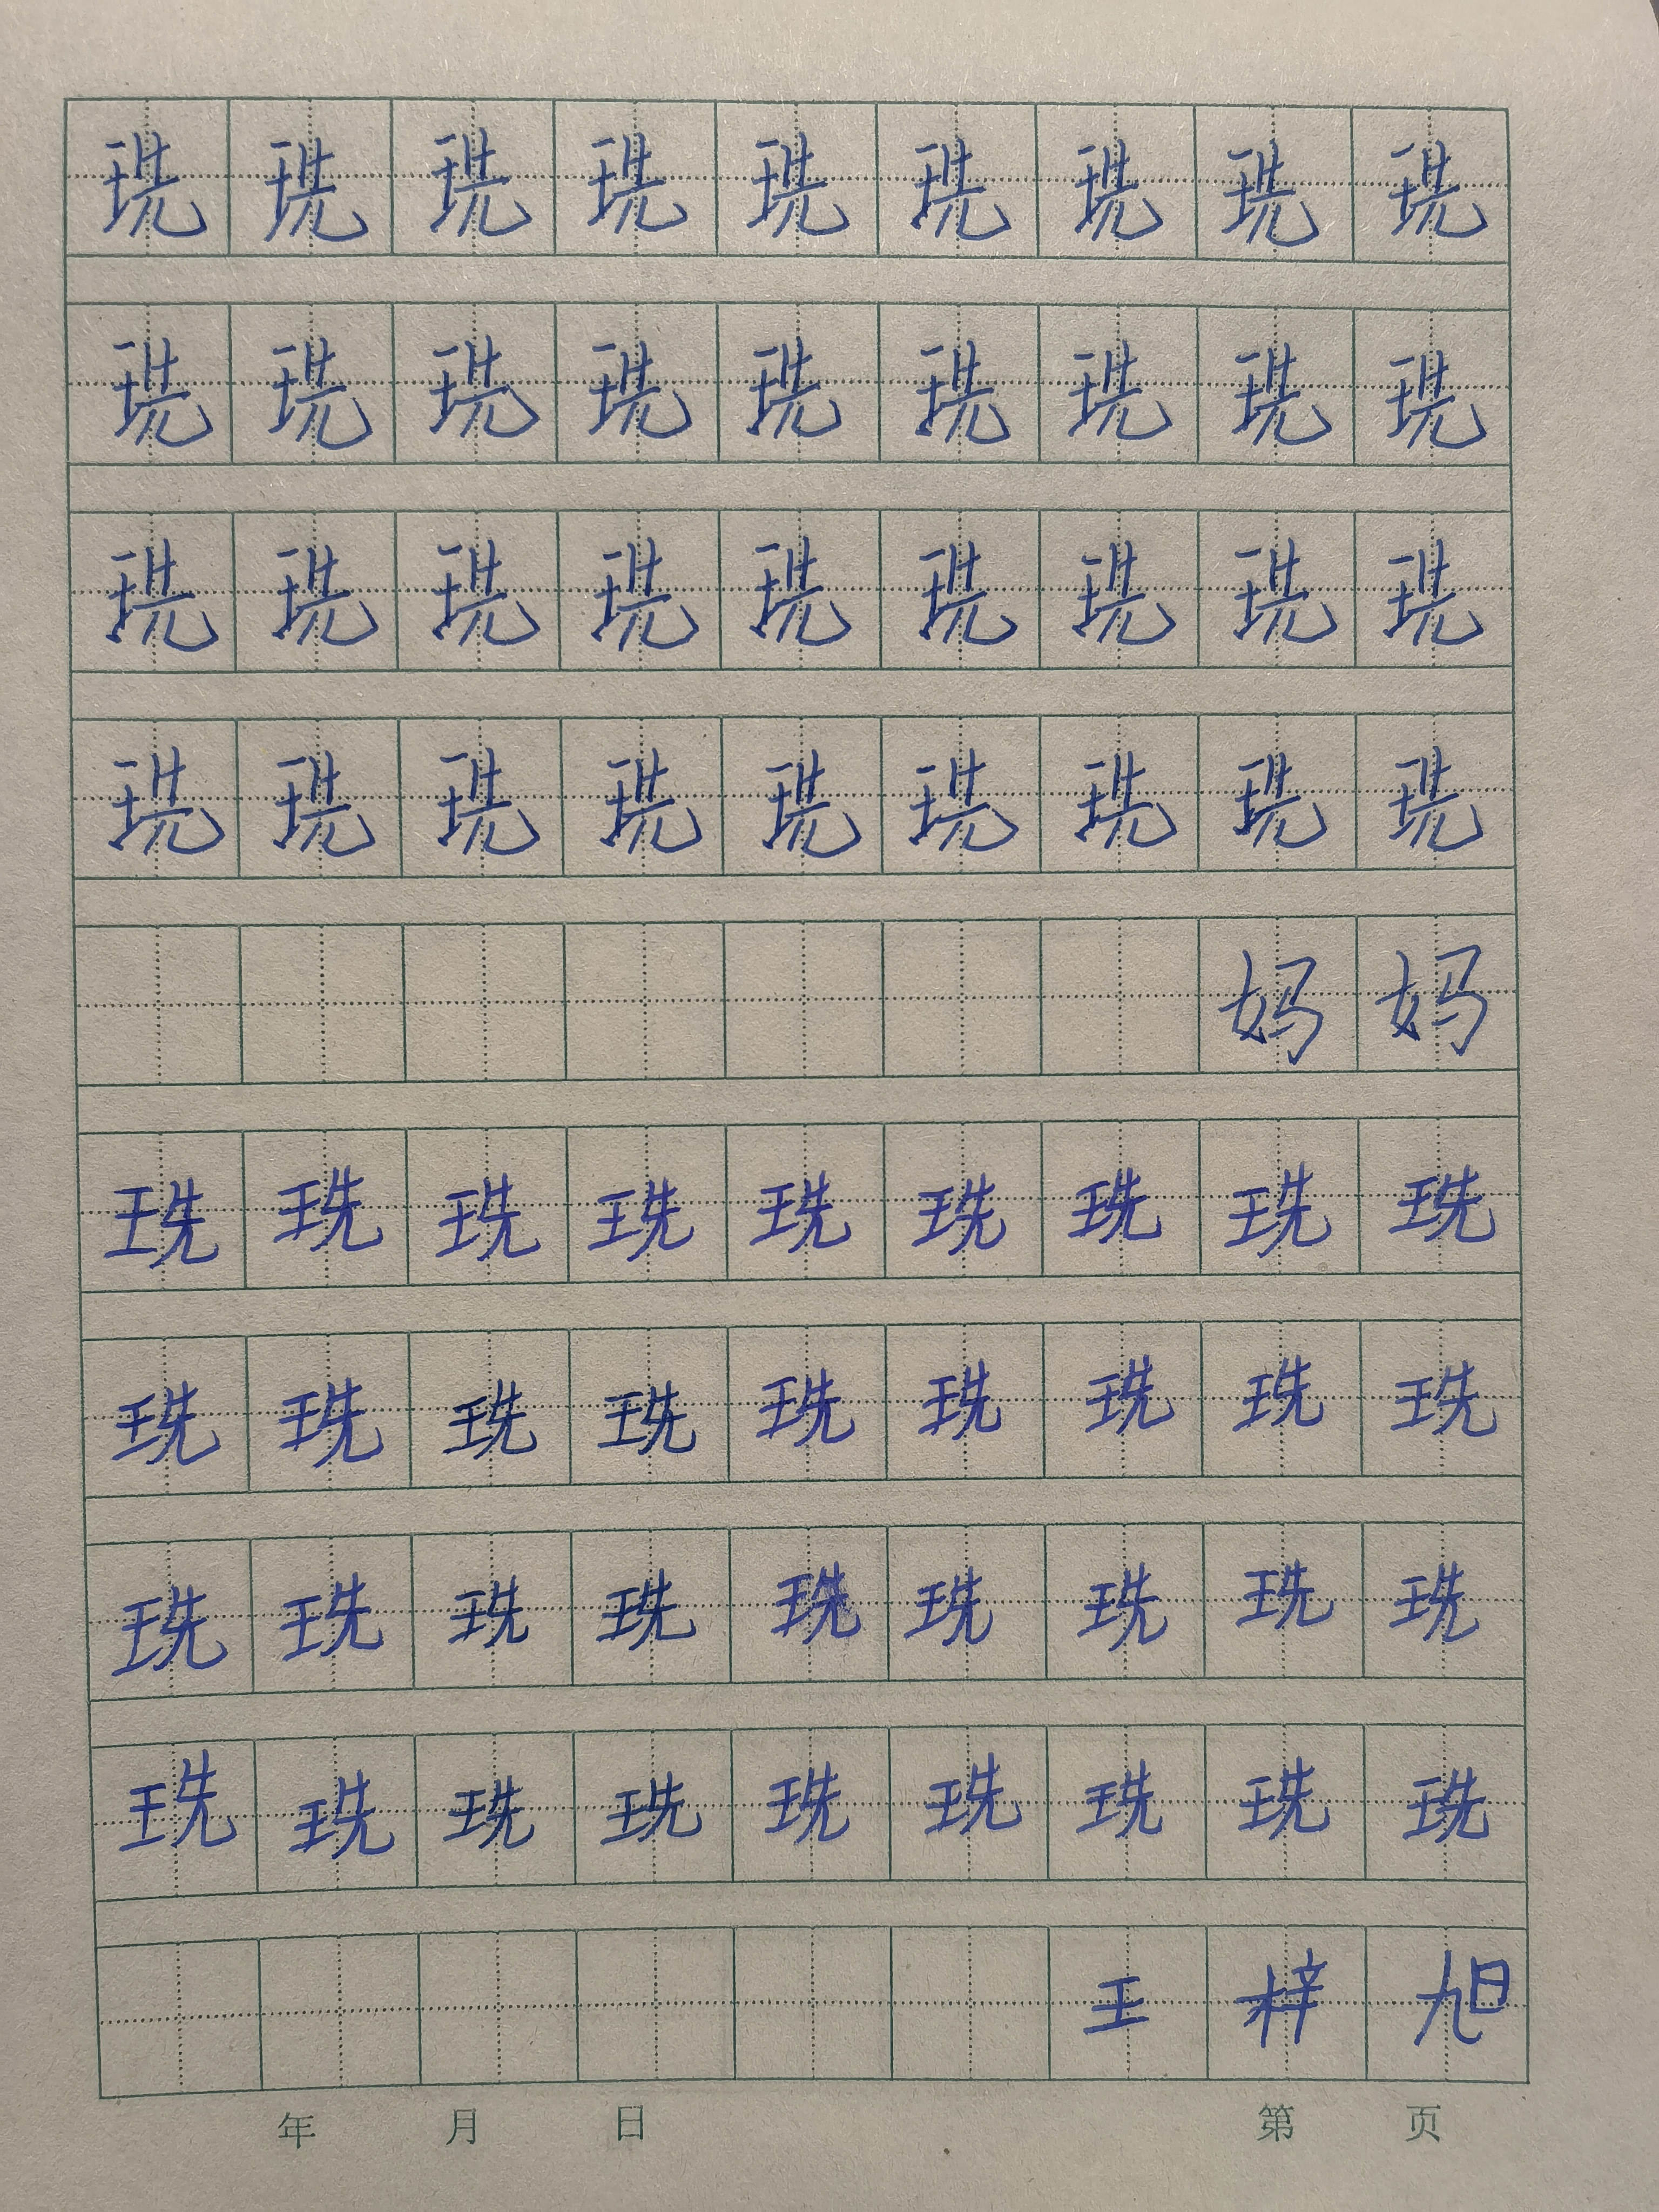 珗珗珗珗珗珗珗珗珗
珗珗珗珗珗珗珗珗珗
珗珗珗珗珗珗珗珗珗
珗珗珗珗珗珗珗珗珗
妈妈
珗珗珗珗珗珗珗珗珗
珗珗珗珗珗珗珗珗珗
珗珗珗珗珗珗珗珗珗
珗珗珗珗珗珗珗珗珗
王梓旭
年 月 日 第 页